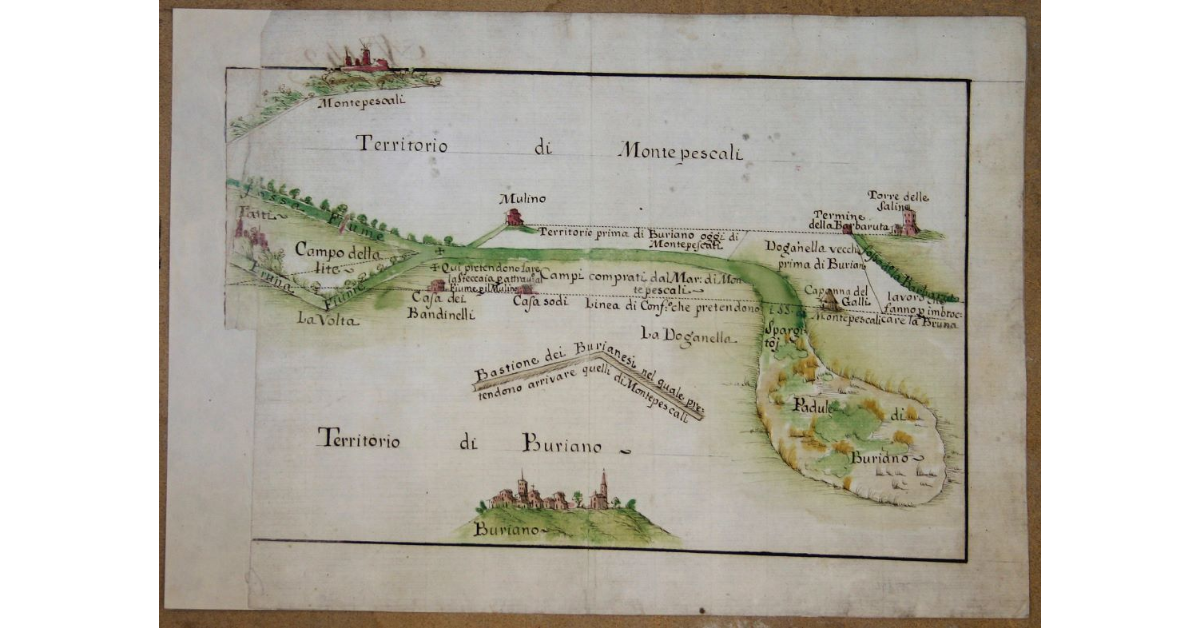 Montepescali
Territorio di Montepescali
Mulino
Torre delle
Saline
Termine
della Barbaruta
Fossa Fiume
Territorio prima di Buriano oggi di
Montepescali
Doganella vecchia
prima di Buriano
Campo della
lite
Qui pretendono fare
la Steccaia
Fiume
Campi comprati dal Mar: di Mon
tepescali
Bruna
Fiume
La Volta
Casa dei
Bandinelli
Casa sodi
Linea di Conf.e che pretendono i SS.
Montepescali
Capanna del
Galli
lavoro che
fanno p imboc:
care la Bruna
La Doganella
Bastione dei Burianesi nel quale pre:
tendono arrivare quelli di Montepescali
Padule di
Buriano
Territorio di Buriano
Buriano